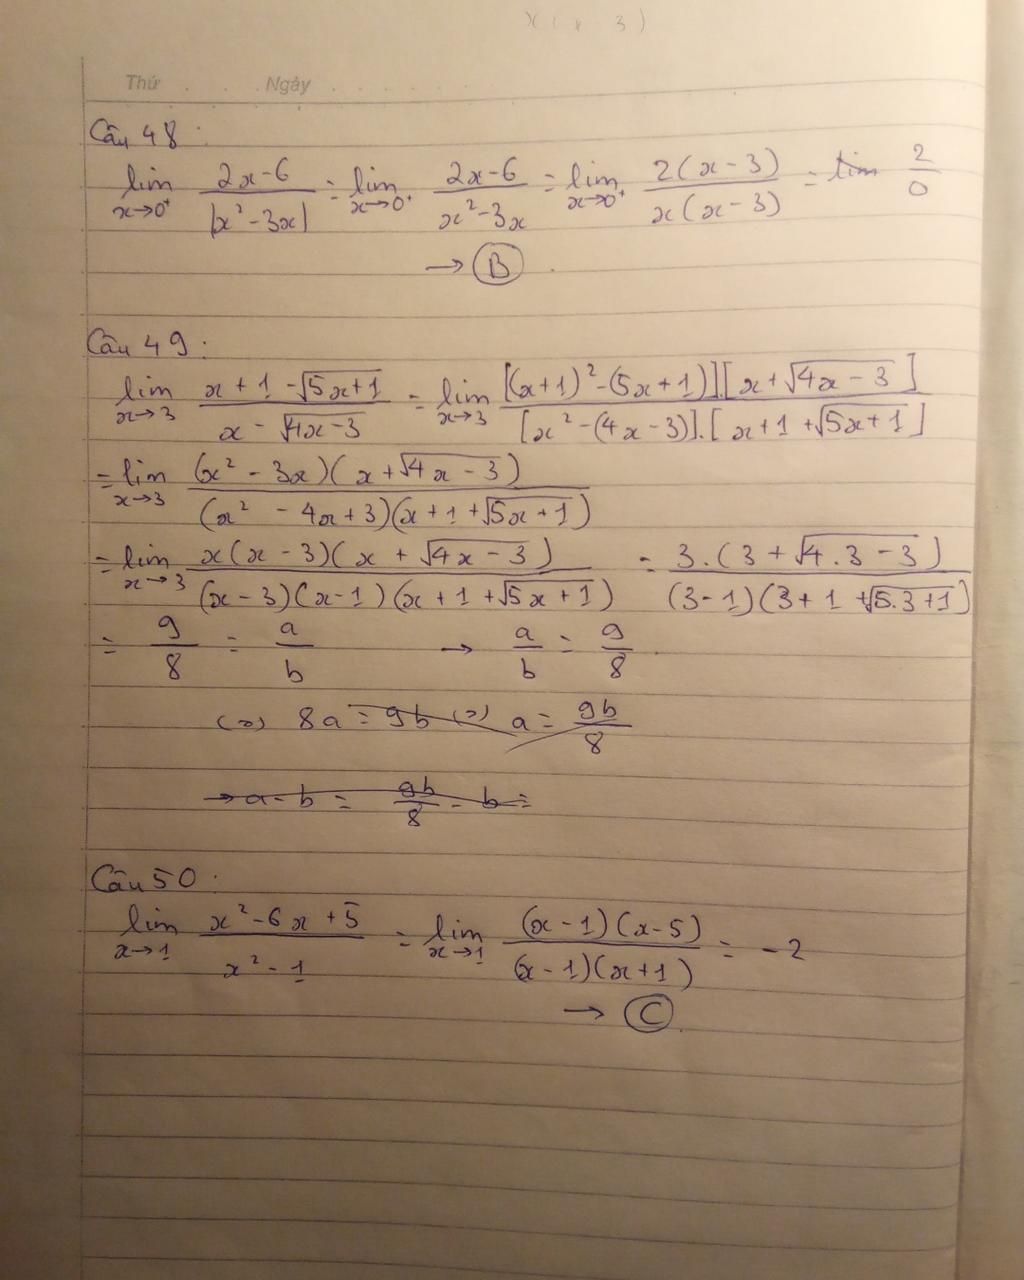 x(x - 3)
Thứ . . . Ngày . . . . . .
Câu 48 :
lim x→0⁺ (2x-6)/|x²-3x| = lim x→0⁺ (2x-6)/(x²-3x) = lim x→0⁺ 2(x-3)/x(x-3) = lim 2/0
→ B .
Câu 49 :
lim x→3 (x+1-√5x+1)/(x-√4x-3) = lim x→3 [(x+1)²-(5x+1)].[x+√4x-3]/[x²-(4x-3)].[x+1+√5x+1]
= lim x→3 (x²-3x)(x+√4x-3)/(x²-4x+3)(x+1+√5x+1)
= lim x→3 x(x-3)(x+√4x-3)/(x-3)(x-1)(x+1+√5x+1) = 3.(3+√4.3-3)/(3-1)(3+1+√5.3+1)
= 9/8 = a/b → a/b = 9/8 .
(=) 8a = 9b (=) a = 9b/8
→ a-b = 9b/8 - b =
Câu 50 :
lim x→1 (x²-6x+5)/(x²-1) = lim x→1 (x-1)(x-5)/(x-1)(x+1) = -2
→ C .